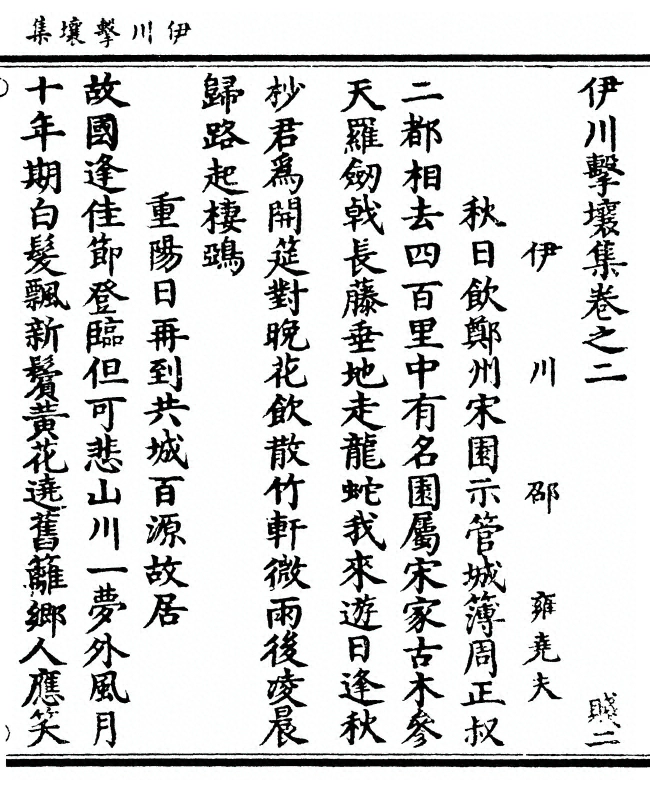 伊川擊壤集
伊川擊壤集卷之二 賤二
伊川邵雍堯夫
秋日飲鄭州宋園示管城簿周正叔
二都相去四百里中有名園屬宋家古木參
天羅劒戟長藤垂地走龍蛇我來遊日逢秋
杪君爲開筵對晚花飲散竹軒微雨後凌晨
歸路起棲鵶
重陽日再到共城百源故居
故國逢佳節登臨但可悲山川一夢外風月
十年期白髮飄新鬢黃花遶舊籬鄉人應笑